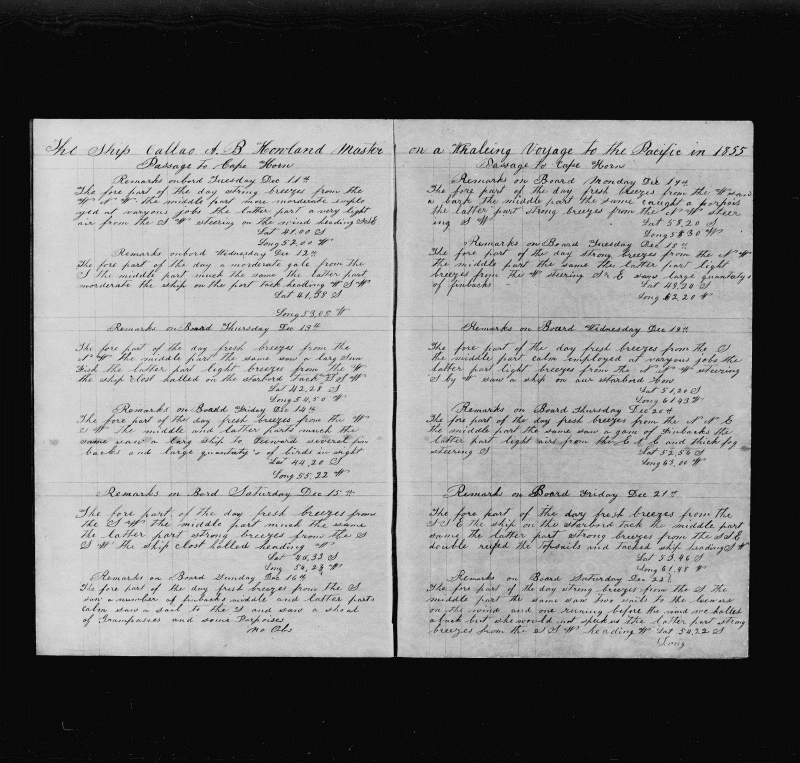 The Ship Callao A. B Howland Master
Passage to Cape Horn
Remarks onbord Tuesday Dec 11th
The fore part of the day string breezes from the
W N W. the middle part more morderate emplo
yed at varyous jobs the latter part a very light
air from the S W steering on the wind heading S S E
Lat 41,00 S
Long 52,00 W
Remarks onbord Wednesday Dec 12th
The fore part of the day a morderate gale from the
S the middle part much the same the latter part
morderate the ship on the port tack heading W S W
Lat 41,58 S
Long 53,08 W
Remarks on Board Thursday Dec 13th
The fore part of the day fresh breezes from the
N W the middle part the same saw a larg Sun
Fish the latter part light breezes from the W
the ship clost halled on the starbord tack S S W
Lat 42,28 S
Long 54,50 W
Remarks on Board Friday Dec 14th
The fore part of the day fresh breezes from the W
S W the middle and latter parts much the
same saw a larg ship to Leeward several fin
backs and large quantaty's of birds in sight
Lat 44,20 S
Long 55,22 W
Remarks on Bord Saturday Dec 15th
The fore part of the day fresh breezes from
the S W the middle part much the same
the latter part strong breezes from the S
S W the ship clost halled heading W
Lat 45,33 S
Long 54,2
Remarks on Board Sunday Dec 16th
The fore part of the day fresh breezes from the S
saw a number of finbacks middle and latter parts
calm saw a sail to the S and saw a shoal
of Grampasses and some Porpoises
No Obs
on a Whaleing Voyage to the Pacific in 1855
Passage to Cape Horn
Remarks on Board Monday Dec 17th
The fore part of the day fresh breezes from the W saw
a bark the middle part the same caught a porpois
the latter part strong breezes from the N W steer
ing S W
Lat 58,20 S
Long 58 30 W
Remarks on Board Tuesday Dec 18th
The fore part of the day strong breezes from the N W
the middle part the same the latter part light
breezes from the W steering S & E saw large quantaty s
of finbacks
Lat 49,20 S
Long 62,20 W
Remarks on Board Wednesday Dec 19th
The fore part of the day fresh breezes from the S
the middle part calm employed at varyous jobs the
latter part light breezes from the N N W steering
S by W saw a ship on our starbord bow
Lat 51,20 S
Long 61 43 W
Remarks on Board Thursday Dec 20th
The fore part of the day fresh breezes from the N N E
the middle part the same saw a gam of Finbacks the
latter part light airs from the E N E and thick fog
steering S
Lat 52,56 S
Long 63,00 W
Remarks on Board Friday Dec 21st
The fore part of the day fresh breezes from the
S S E the ship on the starbord tack the middle part
same the latter part strong breezes from the S S E
double reifed the topsails and tacked ship heading S W
Lat 53,46 S
Long 61,48 W
Remarks on Board Saturday Dec 22
The fore part of the day strong breezes from the S the
middle part the same saw two sails to the Leward
on the wind and one running before the wind we halled
aback but she would not speak us the latter part strong
breezes from the S S W heading W Lat 54,22 S
Long